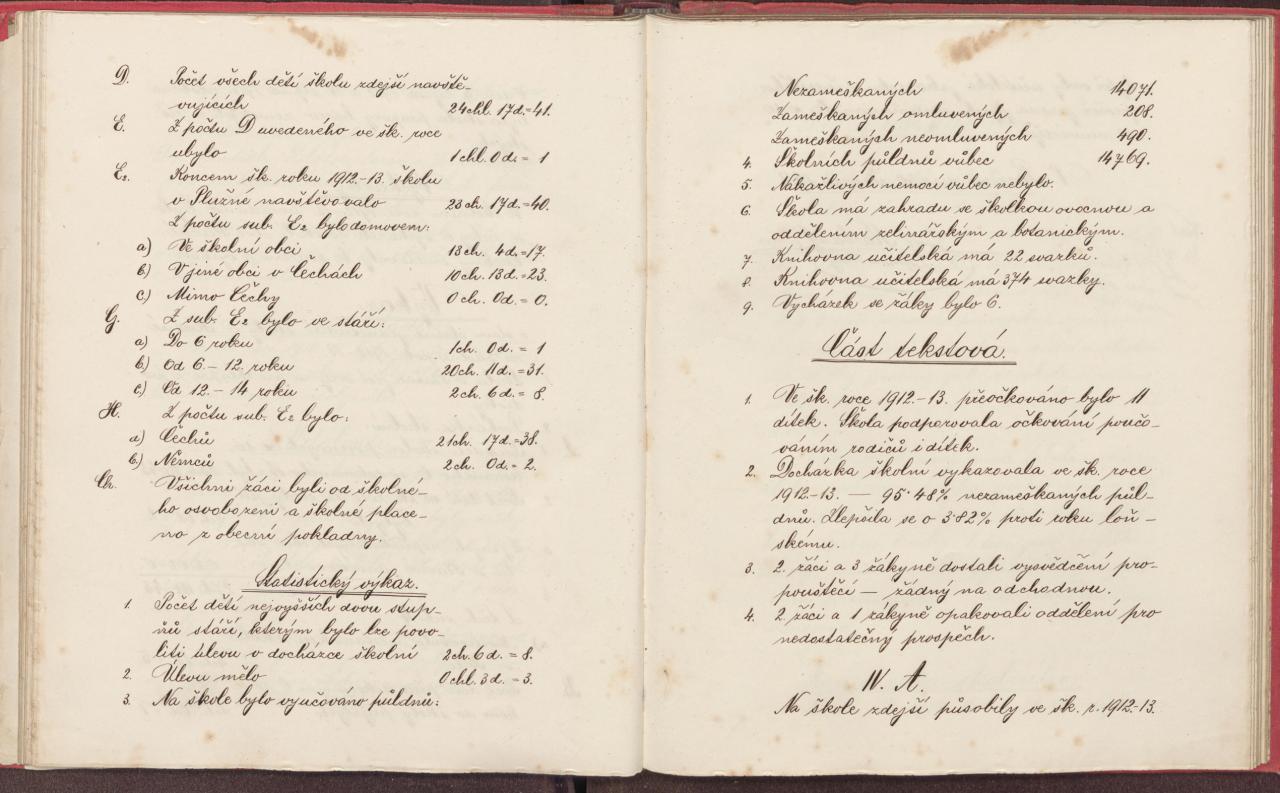 D. Počet všech dětí školu zdejší navště-
vujících 24chl. 17d.=41.
E. Z počtu D uvedeného ve šk. roce
ubylo 1chl. 0d.= 1
E₂. Koncem šk. roku 1912.-13. školu
v Plužné navštěvovalo 23ch. 17d.=40.
Z počtu sub. E₂ bylo domovem:
a) Ve školní obci 13ch. 4d.=17.
b) V jiné obci v Čechách 10ch. 13d.=23.
c) Mimo Čechy 0ch. 0d.= 0.
G. Z sub. E₂ bylo ve stáří:
a) Do 6 roku 1ch. 0d.= 1
b) Od 6.- 12. roku 20ch. 11d.=31.
c) Od 12.- 14 roku 2ch. 6d.= 8.
H. Z počtu sub. E₂ bylo:
a) Čechů 21ch. 17d.=38.
b.) Němců 2ch. 0d.= 2.
Ch. Všichni žáci byli od školné-
ho osvobozeni a školné place-
no z obecní pokladny.
Statistický výkaz.
1. Počet dětí nejvyšších dvou stup-
ňů stáří, kterým bylo lze povo-
liti úlevu v docházce školní 2ch. 6d.= 8.
2. Úlevu mělo 0chl. 3d.= 3.
3. Na škole bylo vyučováno půldnů:
Nezameškaných 14071.
Zameškaných omluvených 208.
Zameškaných neomluvených 490.
4. Školních půldnů vůbec 14769.
5. Nakažlivých nemocí vůbec nebylo.
6. Škola má zahradu se školkou ovocnou a
oddělením zelinářským a botanickým.
7. Knihovna učitelská má 22 svazků.
8. Knihovna učitelská má 374 svazky.
9. Vycházek se žáky bylo 6.
Část tekstová.
1. Ve šk. roce 1912.-13. přeočkováno bylo 11
dítek. Škola podporovala očkování poučo-
váním rodičů i dítek.
2. Docházka školní vykazovala ve šk. roce
1912.-13. — 95·48% nezameškaných půl-
dnů. Zlepšila se o 3·82% proti roku loň-
skému.
3. 2. žáci a 3 žákyně dostali vysvědčení pro-
pouštěcí — žádný na odchodnou.
4. 2. žáci a 1 žákyně opakovali oddělení pro
nedostatečný prospěch.
IV. A.
Na škole zdejší působily ve šk. r. 1912-13.